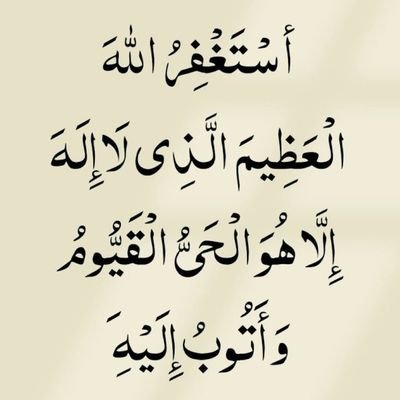 أسْتَغْفِرُ اللهَ
الْعَظِيمَ الَّذِى لَا إِلَهَ
إِلَّا هُوَ الْحَىُّ الْقَيُّومُ
وَأَتُوبُ إِلَيْهَِ